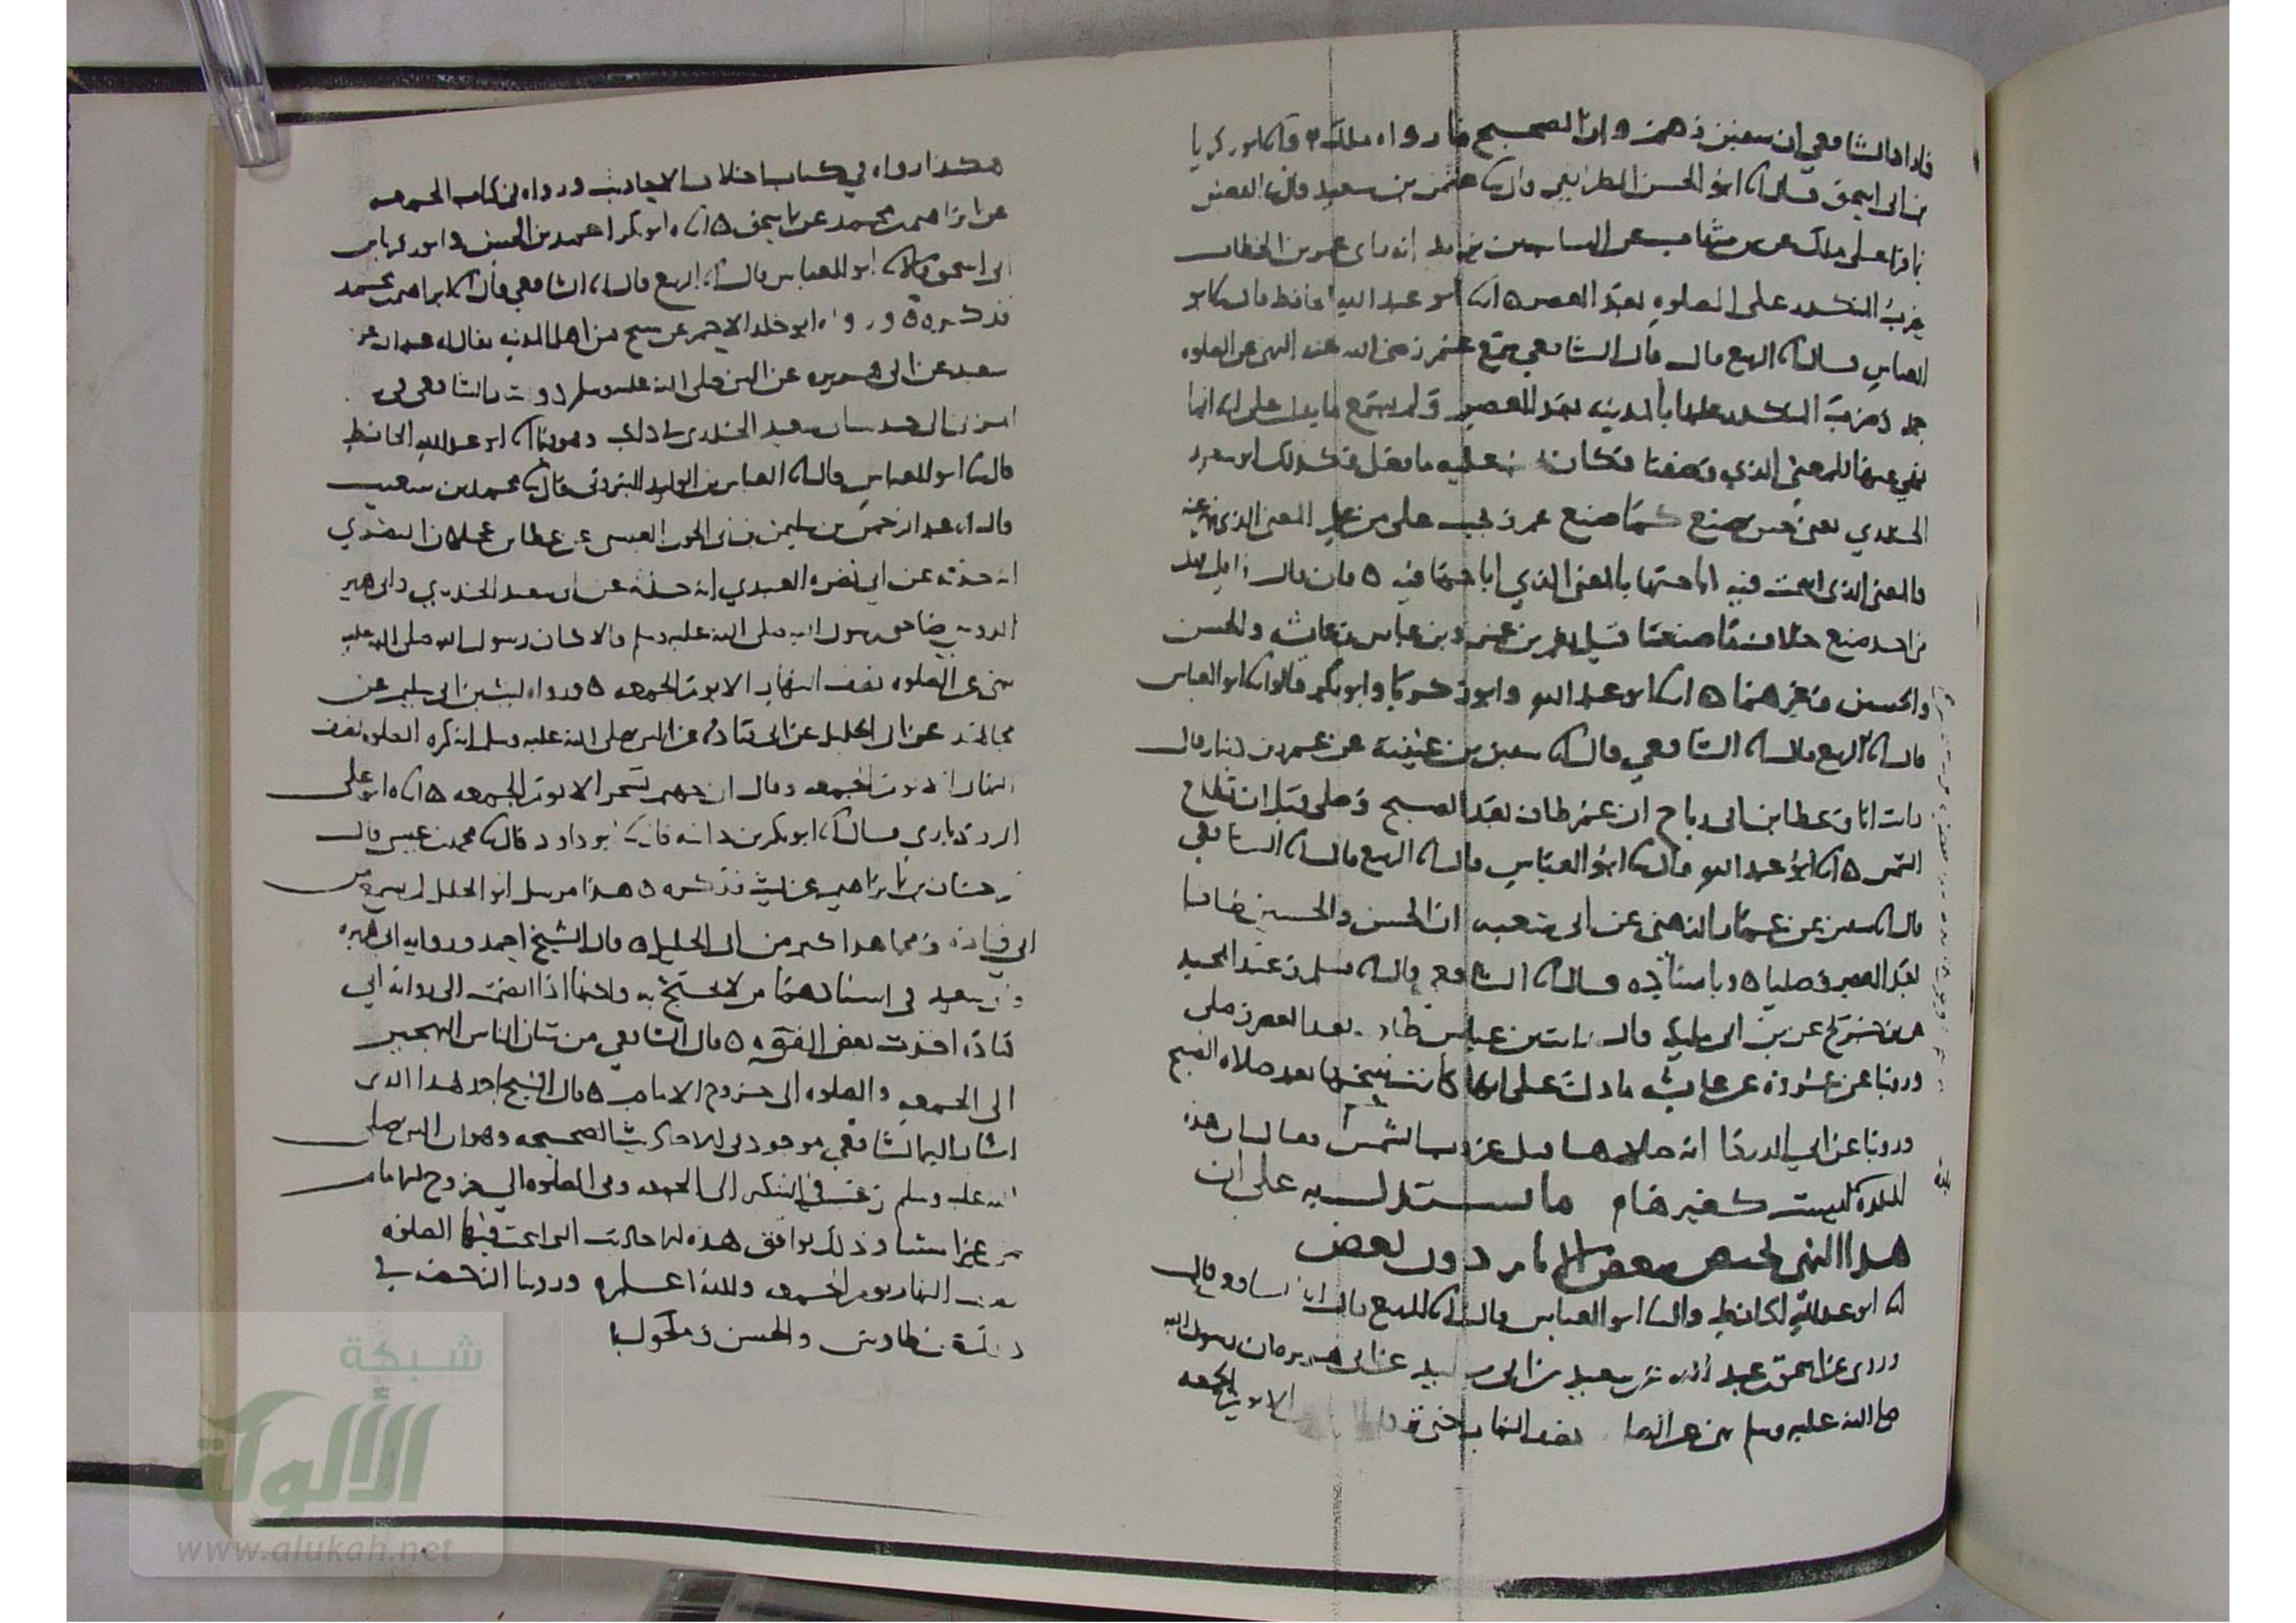 فاراد الشافعي ان سفين وهم وان الصحيح ما رواه ملك
بن ابي اسحق قال ابو الحسن الطرايفي قال عثمن بن سعيد قال القعنبي
فيما قرا على ملك عن بن شهاب عن السايب بن يزيد انه راى عمر بن الخطاب
يضرب المنكدر على الصلوه بعد العصر ابو عبد الله الحافظ قال ابو
العباس قال الربيع قال قال الشافعي سمع عمر رضي الله عنه النهي عن الصلوه
جمله وضرب المنكدر عليها بالمدينه بعد العصر ولم يسمع ما يدل على انه انما
نهي عنها للمعنى الذي وصفنا فكان عليه ما فعل وكذلك ابو سعيد
الخدري يعني حين صنع كما صنع عمر وتجب على من علم المعنى الذي نهى عنه
والمعنى الذي ابيحت فيه اباحتها بالمعنى الذي اباحها فيه فان قال قايل فهل
من احد صنع خلاف ما صنعا قيل نعم بن عمر وبن عباس وعايشه والحسن
والحسين وغيرهما ابو عبد الله وابو زكريا وابو بكر قالوا ابو العباس
قال الربيع قال الشافعي قال سفين بن عيينه عن عمرو بن دينار قال
رايت انا وعطا بن ابي رباح ابن عمر طاف بعد الصبح وصلى قبل ان تطلع
الشمس ابو عبد الله قال ابو العباس قال الربيع قال الشافعي
قال سفين عن عمار الدهني عن ابي شعبه ان الحسن والحسين طافا
بعد العصر وصليا وباسناده قال الشافعي قال مسلم وعبد المجيد
عن بن جريج عن بن ابي مليكه قال رايت بن عباس طاف بعد العصر وصلى
وروينا عن عروه عن عايشه ما دل على انها كانت تبيحها بعد صلاه الصبح
وروينا عن ابي الدردا انه صلاهما قبل غروب الشمس وقال ان هذه
البلده ليست كغيرها ما يستدل به على ان
هذا النهي يختص ببعض الايام دون بعض
ابو عبد الله الحافظ قال ابو العباس قال الربيع قال الشافعي قال
وروي عن اسحق بن عبد الله عن سعيد بن ابي سعيد عن ابي هريره ان رسول الله
صلى الله عليه وسلم نهى عن الصلاه نصف النهار حتى الا يوم الجمعه
هكذا رواه في كتاب اختلاف الاحاديث ورواه في كتاب الجمعه
عن ابراهيم بن محمد عن اسحق ابو بكر احمد بن الحسن وابو زكريا بن
ابي اسحق قالا ابو العباس قال الربيع قال الشافعي قال ابراهيم بن محمد
فذكره ورواه ابو خلد الاحمر عن شيخ من اهل المدينه يقال له عبد الله عن
سعيد عن ابي هريره عن النبي صلى الله عليه وسلم
ابو عبد الله الحافظ
قال ابو العباس قال العباس بن الوليد البيروتي قال محمد بن شعيب
قال عبد الرحمن بن سليمن بن ابي الجون العبسي عن عطا بن عجلان البصري
انه حدثه عن ابي نضره العبدي انه حدثه عن ابي سعيد الخدري وابي هريره
الدوسي صاحبي رسول الله صلى الله عليه وسلم قالا كان رسول الله صلى الله عليه
نهى عن الصلوه نصف النهار الا يوم الجمعه ورواه ليث بن ابي سليم عن
مجاهد عن ابي الخليل عن ابي قتاده عن النبي صلى الله عليه وسلم انه كره الصلوه نصف
النهار الا يوم الجمعه وقال ان جهنم تسجر الا يوم الجمعه ابو علي
الروذباري قال ابو بكر بن داسه قال ابو داود قال محمد بن عيسى قال
حسان بن ابراهيم عن ليث فذكره هذا مرسل ابو الخليل لم يسمع من
ابي قتاده ومجاهد اكبر من ابي الخليل قال الشيخ احمد وروايه ابي هريره
وابي سعيد في اسنادهما من لا يحتج به ولكنها اذا انضمت الى روايه ابي
قتاده اخذت بعض القوه قال الشافعي من شان الناس التهجير
الى الجمعه والصلوه الى خروج الامام قال الشيخ احمد هذا الذي
اشار اليه الشافعي موجود في الاحاديث الصحيحه وهو ان النبي صلى
الله عليه وسلم رغب في التبكير الى الجمعه وفي الصلوه الى خروج الامام
من غير استثنا وذلك يوافق هذه الاحاديث التي ابيحت فيها الصلوه
نصف النهار يوم الجمعه والله اعلم وروينا الرخصه في
ذلك عن طاوس والحسن ومكحول
شبكة
الألوكة
www.alukah.net